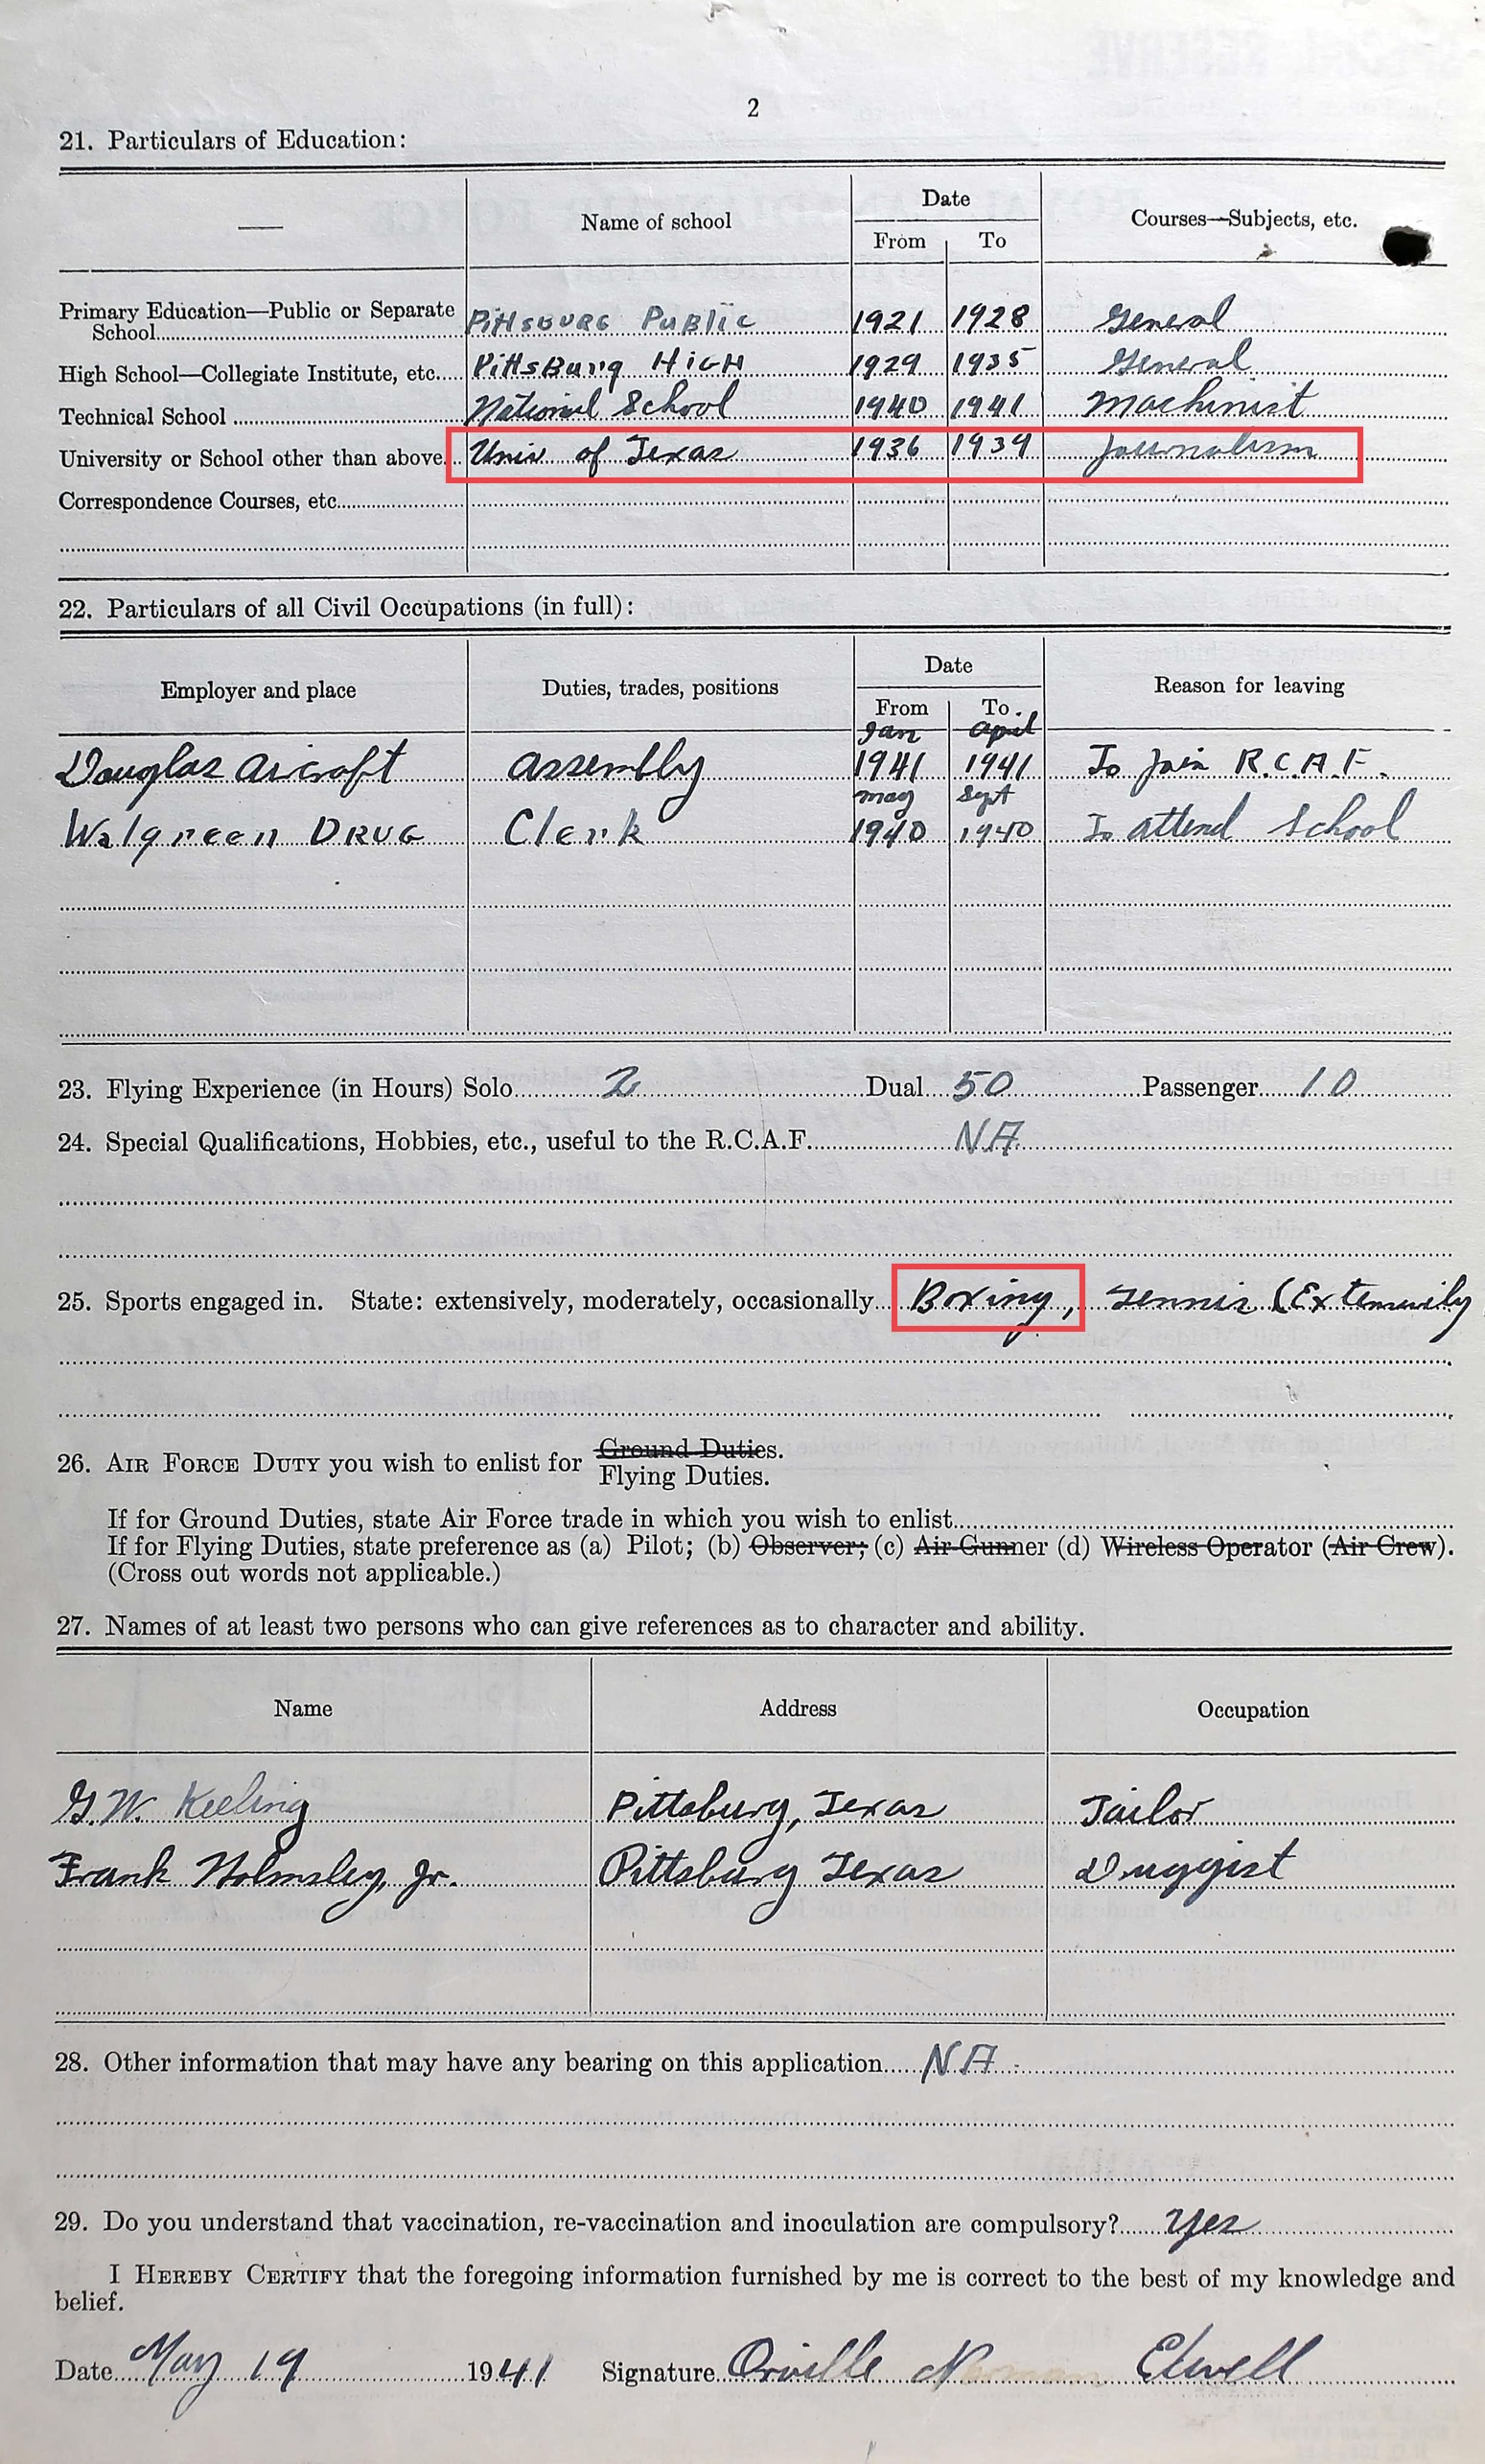 2
21. Particulars of Education:
Name of school
Date
From To
Courses—Subjects, etc.
Primary Education—Public or Separate
School PITTSBURG PUBLIC 1921 1928 General
High School—Collegiate Institute, etc. PittsBurg HIGH 1929 1935 General
Technical School National School 1940 1941 Machinist
University or School other than above Univ. of Texas 1936 1939 Journalism
Correspondence Courses, etc.
22. Particulars of all Civil Occupations (in full):
Employer and place Duties, trades, positions
Date
From To
Reason for leaving
Jan April
Douglas Aircraft assembly 1941 1941 To join R.C.A.F.
May Sept
Walgreen DRUG Clerk 1940 1940 To attend School
23. Flying Experience (in Hours) Solo 2 Dual 50 Passenger 10
24. Special Qualifications, Hobbies, etc., useful to the R.C.A.F. NA
25. Sports engaged in. State: extensively, moderately, occasionally Boxing, Tennis (Extensively
26. AIR FORCE DUTY you wish to enlist for Ground Duties.
Flying Duties.
If for Ground Duties, state Air Force trade in which you wish to enlist
If for Flying Duties, state preference as (a) Pilot; (b) Observer; (c) Air Gunner (d) Wireless Operator (Air Crew).
(Cross out words not applicable.)
27. Names of at least two persons who can give references as to character and ability.
Name Address Occupation
G.W. Keeling Pittsburg, Texas Tailor
Frank Holmsley, Jr. Pittsburg Texas Druggist
28. Other information that may have any bearing on this application NA
29. Do you understand that vaccination, re-vaccination and inoculation are compulsory? Yes
I HEREBY CERTIFY that the foregoing information furnished by me is correct to the best of my knowledge and
belief.
Date May 19 1941 Signature Orville Norman Elwell